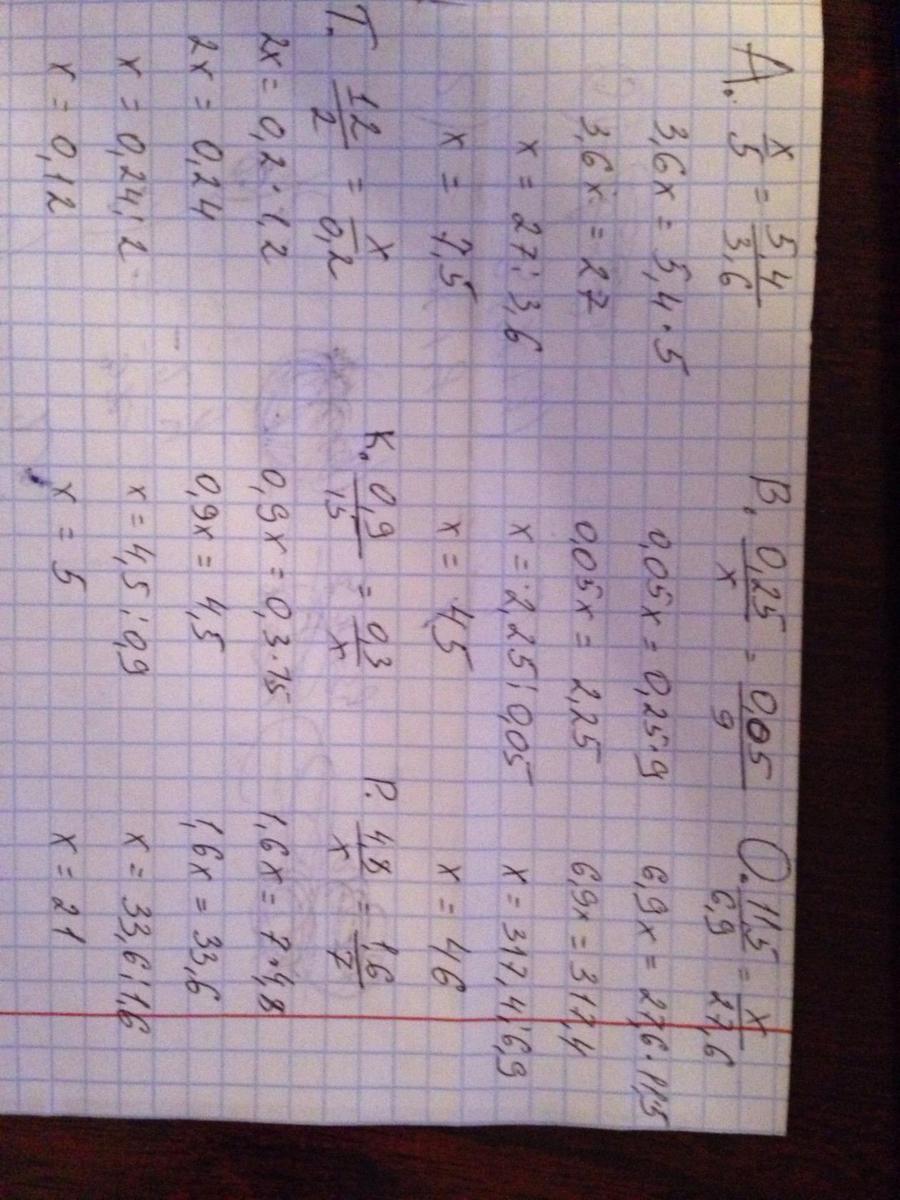 А. x/5 = 5,4/3,6
3,6x = 5,4·5
3,6x = 27
x = 27:3,6
x = 7,5
В. 0,25/x = 0,05/9
0,05x = 0,25·9
0,05x = 2,25
x = 2,25:0,05
x = 45
О. 11,5/6,9 = x/27,6
6,9x = 27,6·11,5
6,9x = 317,4
x = 317,4:6,9
x = 46
Т. 1,2/2 = x/0,2
2x = 0,2·1,2
2x = 0,24
x = 0,24:2
x = 0,12
К. 0,9/15 = 0,3/x
0,9x = 0,3·15
0,9x = 4,5
x = 4,5:0,9
x = 5
Р. 4,8/x = 1,6/7
1,6x = 7·4,8
1,6x = 33,6
x = 33,6:1,6
x = 21